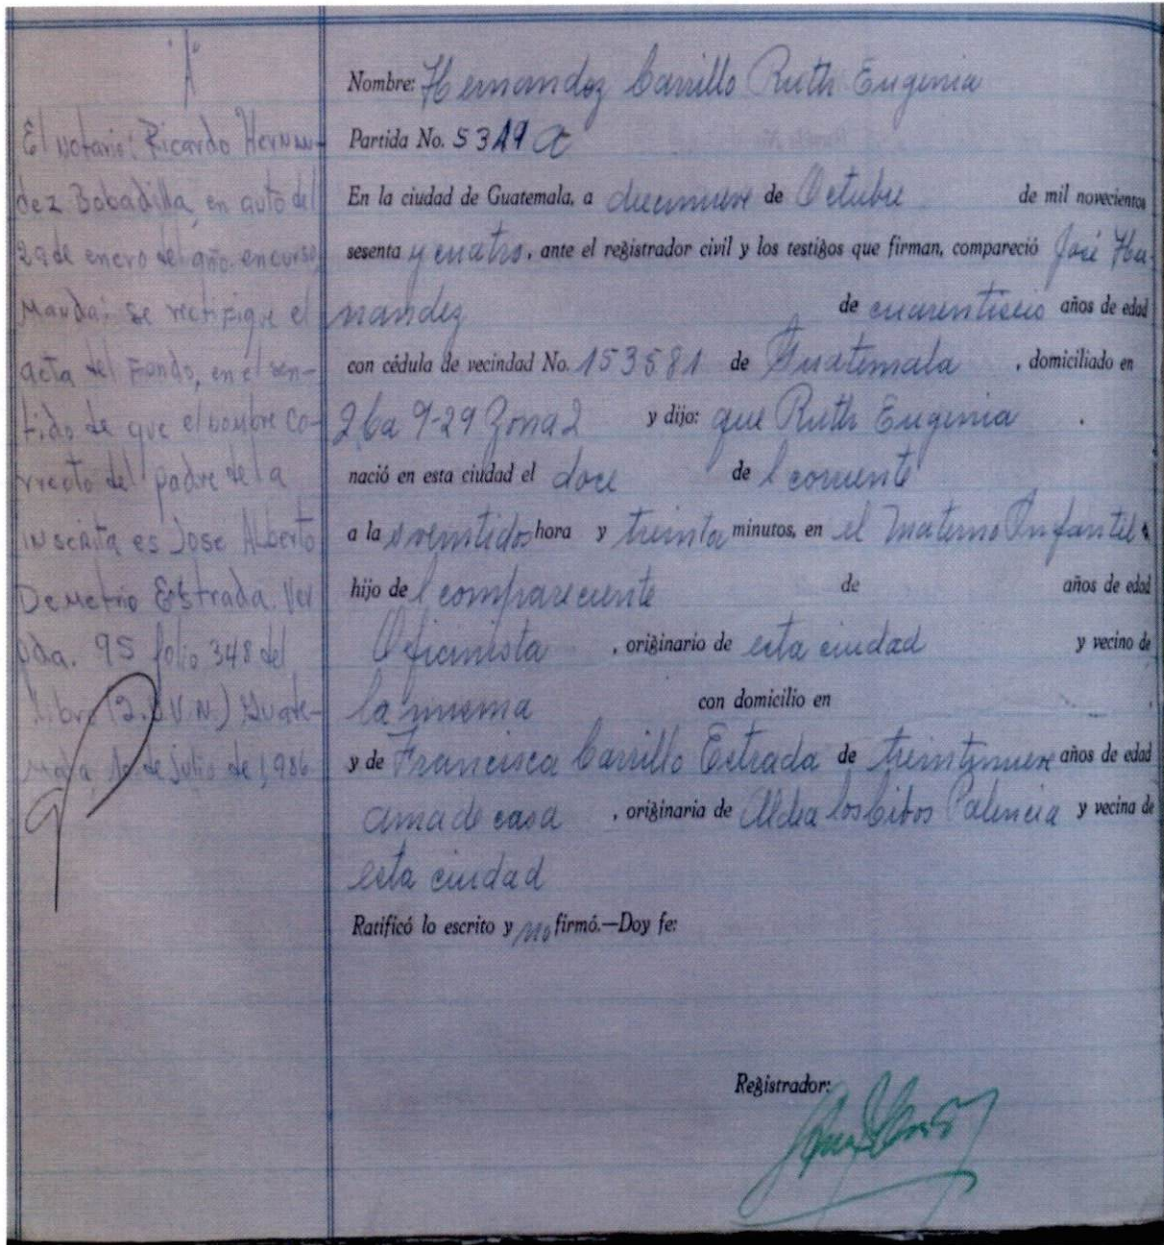 "A"
El Notario: Ricardo Hernan-
dez Bobadilla, en auto del
29 de enero del año en curso,
Manda: se rectifique el
acta del Fondo, en el sen-
tido de que el nombre co-
rrecto del padre de la
inscrita es Jose Alberto
Demetrio Estrada. Ver
pda. 95 folio 348 del
libro (2. V.N.) Guate-
mala, 10 de julio de 1,986
Nombre: Hernandez Carrillo Ruth Eugenia
Partida No. 5319
En la ciudad de Guatemala, a diecinueve de Octubre de mil novecientos
sesenta y cuatro, ante el registrador civil y los testigos que firman, compareció José Her-
nandez de cuarentiseis años de edad
con cédula de vecindad No. 153581 de Guatemala, domiciliado en
9-29 Zona 2 y dijo: que Ruth Eugenia.
nació en esta ciudad el doce de l corriente
a las veintidos hora y treinta minutos, en el Materno Infantil
hijo de l compareciente de años de edad
Oficinista, originario de esta ciudad y vecino de
la misma con domicilio en
y de Francisca Carrillo Estrada de treintinueve años de edad
ama de casa, originaria de Aldea los Palencia y vecina de
esta ciudad
Ratificó lo escrito y no firmó.—Doy fe:
Registrador: